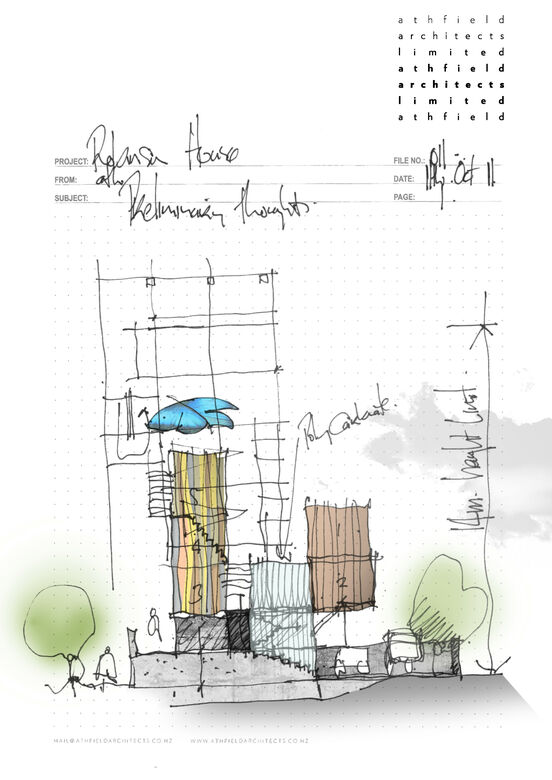 athfield
architects
limited
athfield
architects
limited
athfield
PROJECT: House
FILE NO.:
FROM: ath
DATE: Oct 11
SUBJECT: Preliminary thoughts.
PAGE:
Polycarbonate.
height limit.
1
2
4
3
MAIL@ATHFIELDARCHITECTS.CO.NZ WWW.ATHFIELDARCHITECTS.CO.NZ